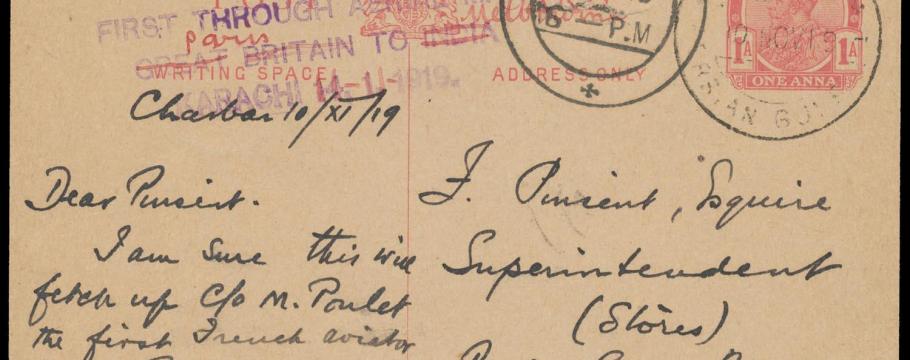 FIRST THROUGH AERIAL
Paris
GREAT BRITAIN TO INDIA
KARACHI 14-1-1919.
Melbourne
WRITING SPACE
ADDRESS ONLY
P.M
10 NOV 19
1A
1A
ONE ANNA
Charbar 10/XI/19
Dear Pinsent.
I am sure this will
fetch up C/o M. Poulet
the first French aviator
F. Pinsent, Esquire
Superintendent
(Stores)